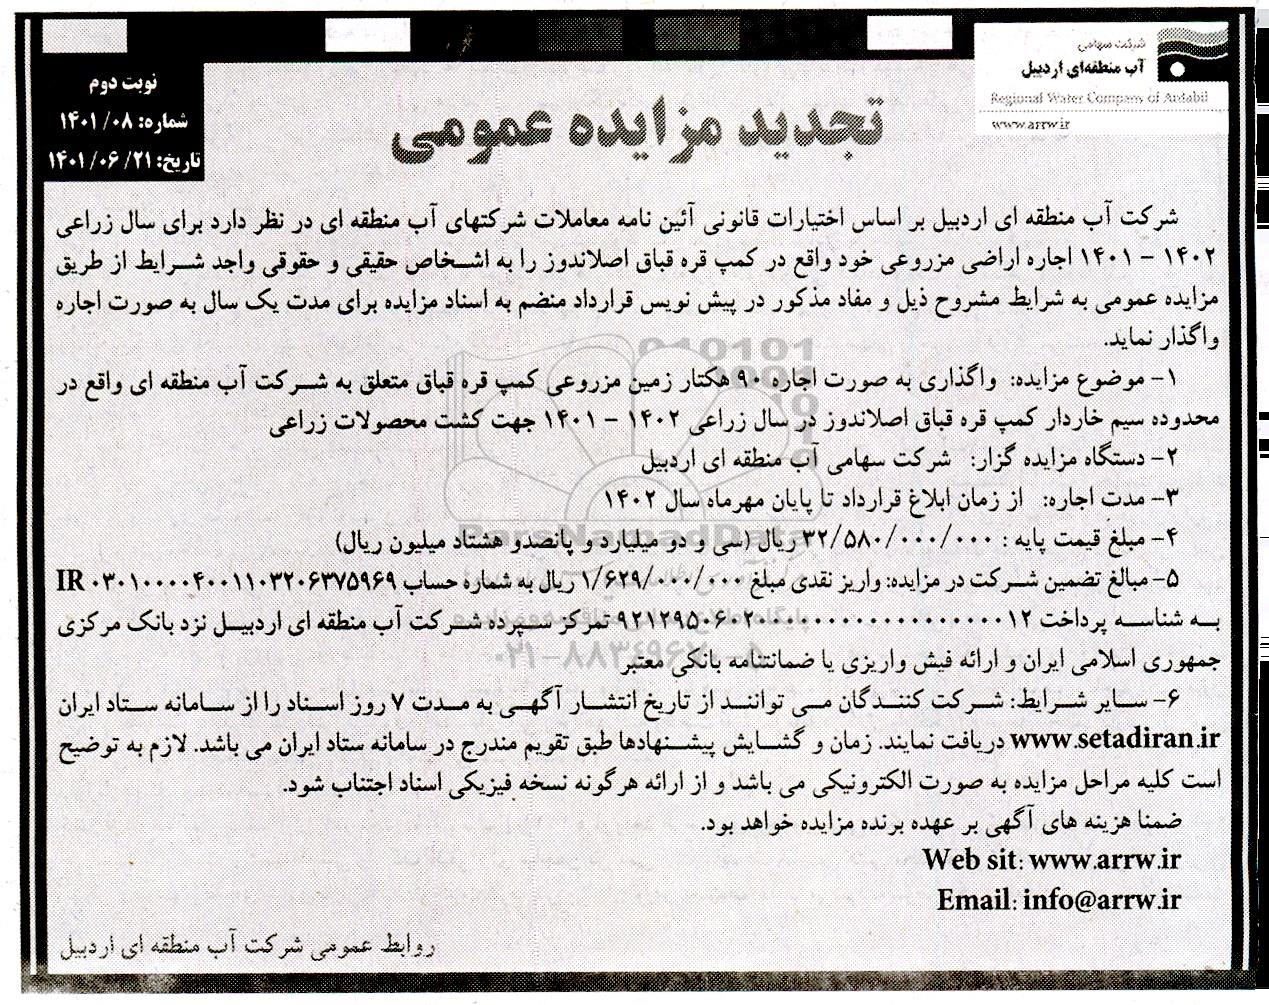 شرکت سهامی
آب منطقه‌ای اردبیل
Regional Water Company of Ardabil
www.arrw.ir
نوبت دوم
شماره: ۱۴۰۱/۰۸
تاریخ: ۱۴۰۱/۰۶/۲۱
تجدید مزایده عمومی
شرکت آب منطقه ای اردبیل بر اساس اختیارات قانونی آئین نامه معاملات شرکتهای آب منطقه ای در نظر دارد برای سال زراعی
۱۴۰۲ – ۱۴۰۱ اجاره اراضی مزروعی خود واقع در کمپ قره قباق اصلاندوز را به اشخاص حقیقی و حقوقی واجد شرایط از طریق
مزایده عمومی به شرایط مشروح ذیل و مفاد مذکور در پیش نویس قرارداد منضم به اسناد مزایده برای مدت یک سال به صورت اجاره
واگذار نماید.
۱- موضوع مزایده: واگذاری به صورت اجاره ۹۰ هکتار زمین مزروعی کمپ قره قباق متعلق به شرکت آب منطقه ای واقع در
محدوده سیم خاردار کمپ قره قباق اصلاندوز در سال زراعی ۱۴۰۲ – ۱۴۰۱ جهت کشت محصولات زراعی
۲- دستگاه مزایده گزار: شرکت سهامی آب منطقه ای اردبیل
۳- مدت اجاره: از زمان ابلاغ قرارداد تا پایان مهرماه سال ۱۴۰۲
۴- مبلغ قیمت پایه : ۳۲/۵۸۰/۰۰۰/۰۰۰ ریال (سی و دو میلیارد و پانصدو هشتاد میلیون ریال)
۵- مبالغ تضمین شرکت در مزایده: واریز نقدی مبلغ ۱/۶۲۹/۰۰۰/۰۰۰ ریال به شماره حساب IR ۰۳۰۱۰۰۰۰۴۰۰۱۱۰۳۲۰۶۳۷۵۹۶۹
به شناسه پرداخت تمرکز سپرده شرکت آب منطقه ای اردبیل نزد بانک مرکزی
جمهوری اسلامی ایران و ارائه فیش واریزی یا ضمانتنامه بانکی معتبر
۶- سایر شرایط: شرکت کنندگان می توانند از تاریخ انتشار آگهی به مدت ۷ روز اسناد را از سامانه ستاد ایران
www.setadiran.ir دریافت نمایند. زمان و گشایش پیشنهادها طبق تقویم مندرج در سامانه ستاد ایران می باشد. لازم به توضیح
است کلیه مراحل مزایده به صورت الکترونیکی می باشد و از ارائه هرگونه نسخه فیزیکی اسناد اجتناب شود.
ضمنا هزینه های آگهی بر عهده برنده مزایده خواهد بود.
Web sit: www.arrw.ir
Email: info@arrw.ir
روابط عمومی شرکت آب منطقه ای اردبیل
ParsNamadData
۰۲۱-۸۸۳۴۹۶۷۰-۵